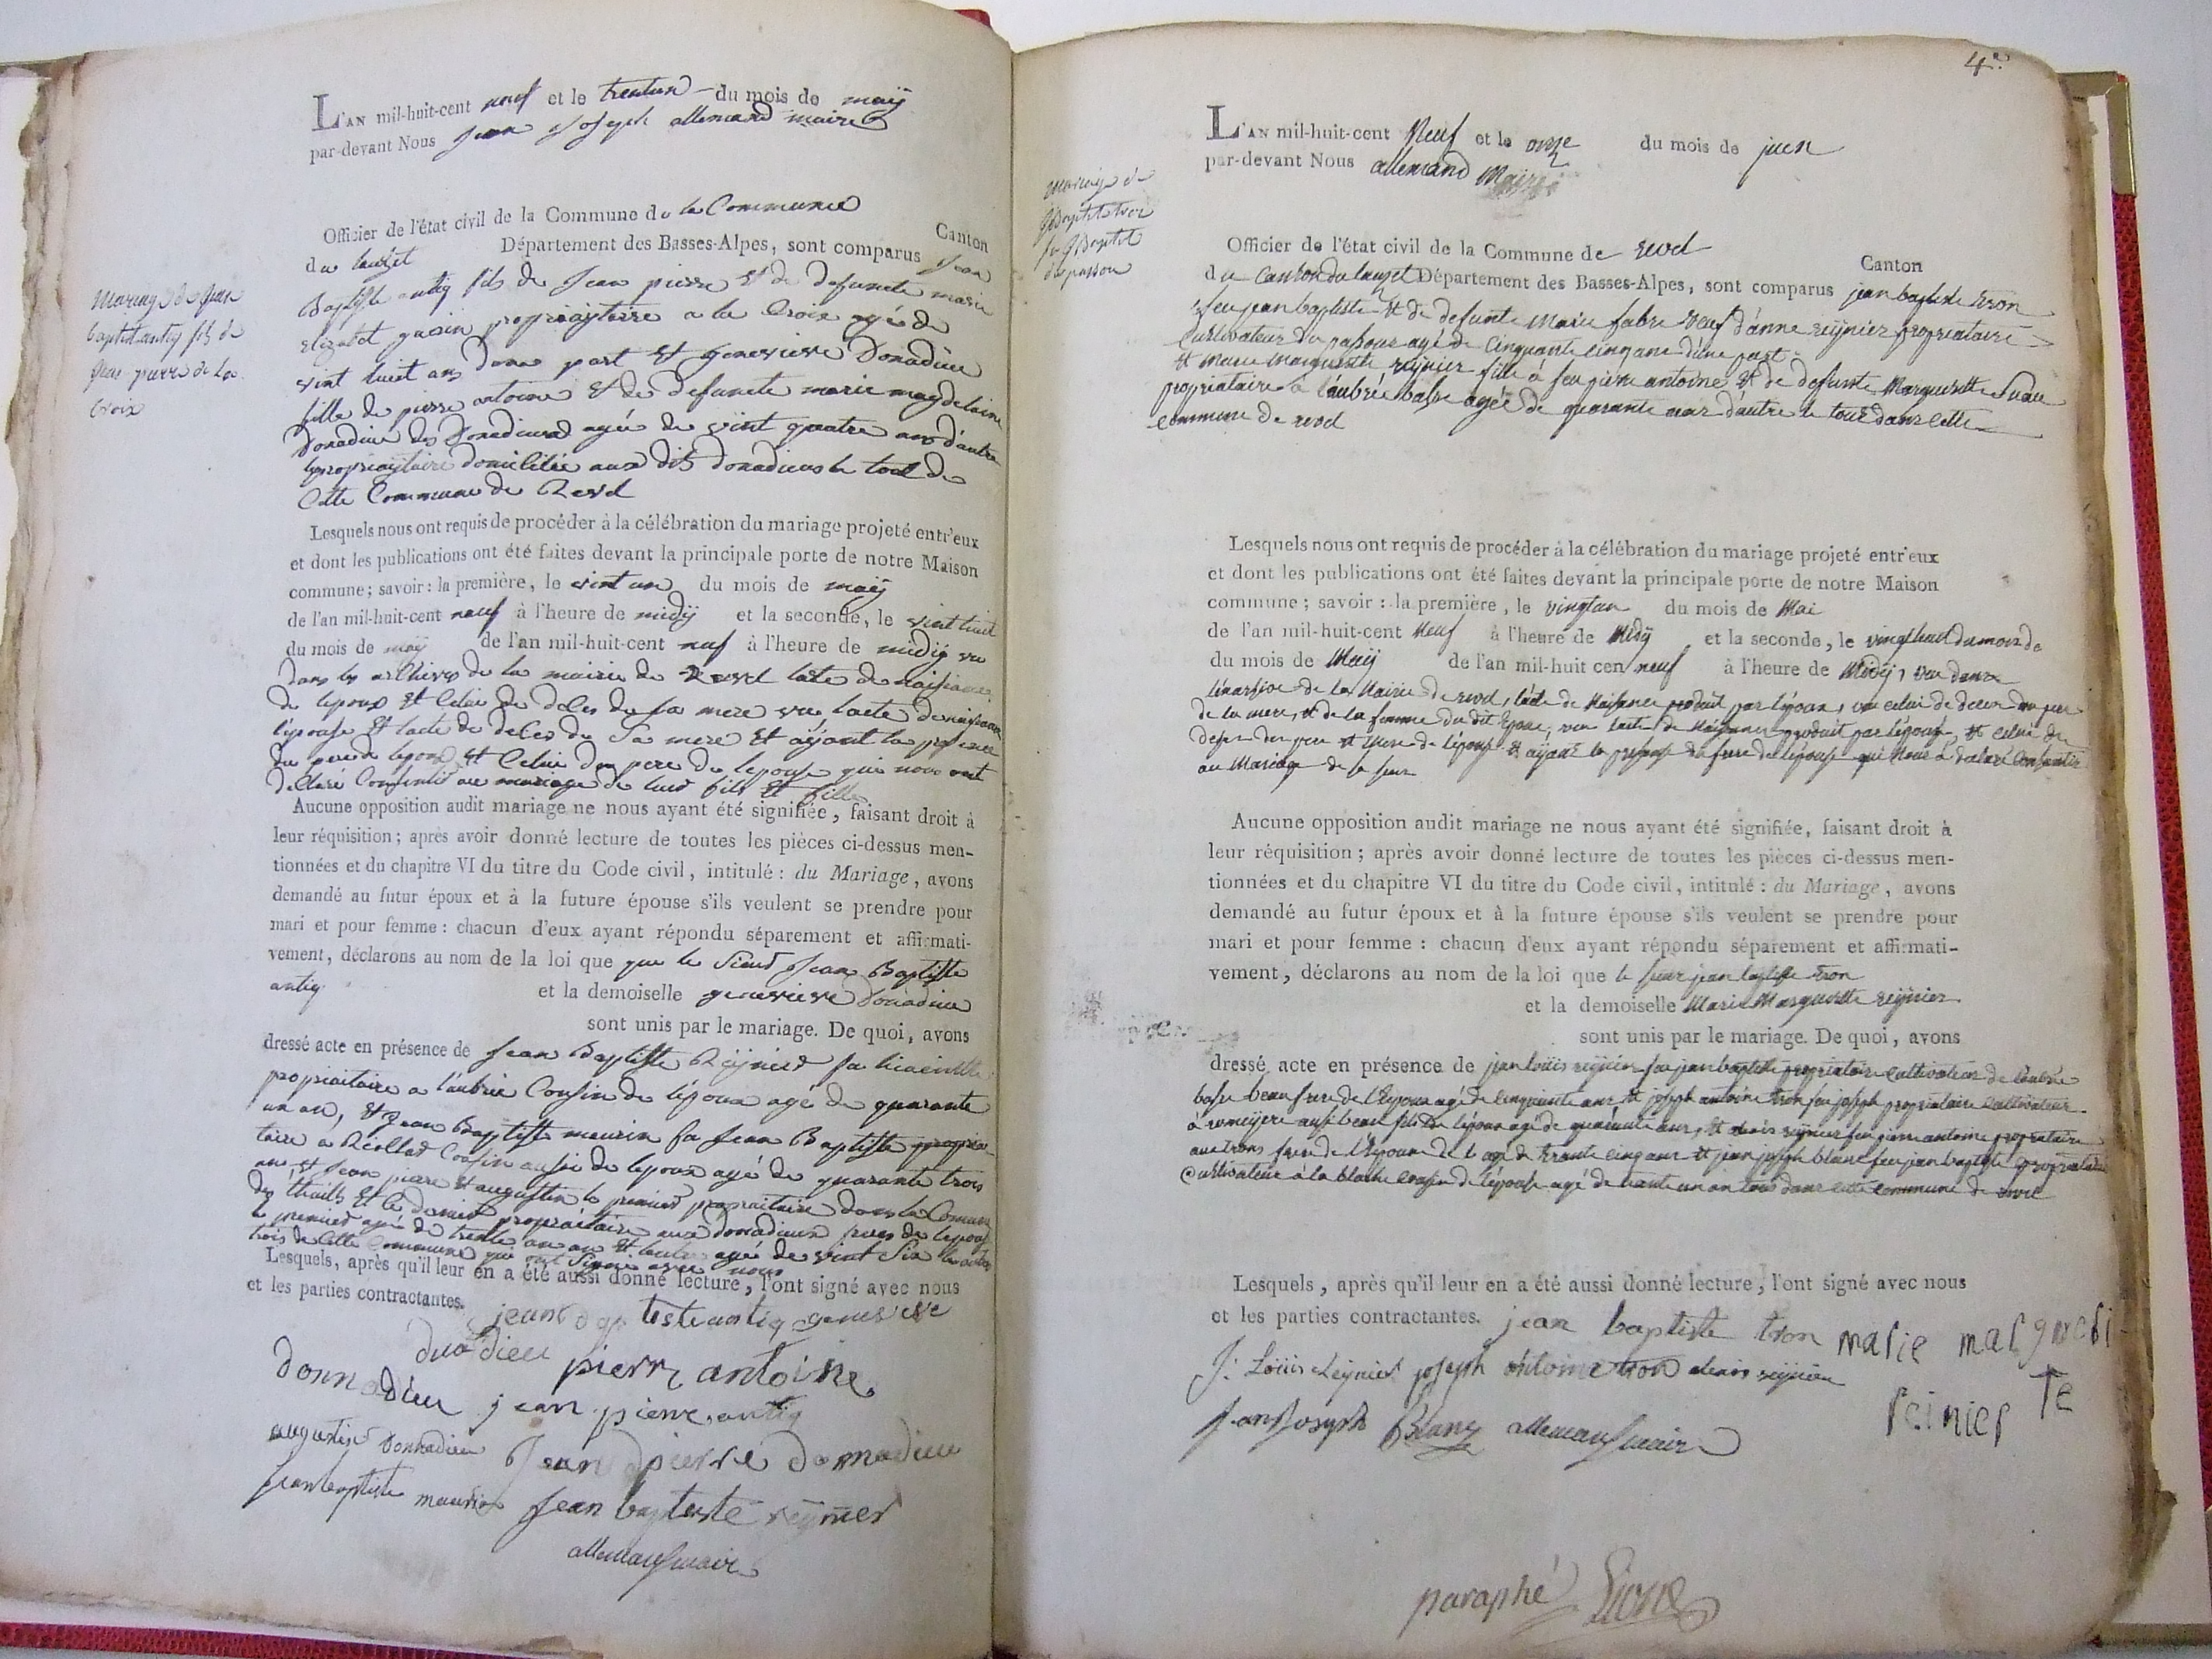 L'AN mil-huit-cent neuf et le trentun du mois de maÿ
par-devant Nous jean joseph allemand maire
Officier de l'état civil de la Commune de la Commune
Canton
du lauzet Département des Basses-Alpes, sont comparus jean
Baptiste antiq fils de jean pierre et de defuncte marie
Elizabet propriaytaire a la Croix agé de
vint huit ans dune part et genevieve Donadieu
fille de pierre antoine et de defuncte marie magdelaine
Donadieu des Donadieux agée de vint quatre ans d'autre
propriaytaire domiciliée aux dits donadieus le tout de
Cette Commune de Revel
Mariage de jean
baptist antiq fils de
jean pierre de la
Croix
Lesquels nous ont requis de procéder à la célébration du mariage projeté entr'eux
et dont les publications ont été faites devant la principale porte de notre Maison
commune; savoir: la première, le vint un du mois de maÿ
de l'an mil-huit-cent neuf à l'heure de midÿ et la seconde, le vint huit
du mois de maÿ de l'an mil-huit-cent neuf à l'heure de midÿ vu
dans les archives de la mairie de Revel lacte de naissance
de lepoux et Celui de deces de sa mere vu lacte de naissance
lépouse et lacte de deces de Sa mere et aÿant la presence
du pere de lepoux et Celui du pere de lepouse qui nous ont
declaré Consentir au mariage de leurs fils et fille
Aucune opposition audit mariage ne nous ayant été signifiée, faisant droit à
leur réquisition; après avoir donné lecture de toutes les pièces ci-dessus men-
tionnées et du chapitre VI du titre du Code civil, intitulé: du Mariage, avons
demandé au futur époux et à la future épouse s'ils veulent se prendre pour
mari et pour femme: chacun d'eux ayant répondu séparement et affirmati-
vement, déclarons au nom de la loi que que le Sieur jean Baptiste
antiq et la demoiselle genevieve Donadieu
sont unis par le mariage. De quoi, avons
dressé acte en présence de jean Baptiste Reÿnier
propriaitaire a laubrée Cousin de lépoux agé de quarante
un an, et jean Baptiste meurin fu jean Baptiste proprie
taire a Cousin aussi de lepoux agé de quarante trois
ans et jean pierre et augustin le premier propriaitaire dans la Comune
des thuiles et le dernier propriaitaire aux donadieux freres de lepouse
le premier agé de trente un an et agé de vint Six
trois de Cette Commune qui ont Signé avec nous
Lesquels, après qu'il leur en a été aussi donné lecture, l'ont signé avec nous
et les parties contractantes.
jean baptiste antiq genevieve
donadieu pierre antoine
donnadieu jean pierre antiq
augustin Donnadieu jean pierre donnadieu
jean baptiste meurin jean baptiste reÿnier
allemand maire
4e.
L'AN mil-huit-cent Neuf et le onze du mois de juin
par-devant Nous allemand Maire
Mariage de
J Baptiste tron
fu J Baptiste
du passou
Officier de l'état civil de la Commune de revel
Canton
du Canton du lauzet Département des Basses-Alpes, sont comparus jean baptiste tron
feu jean baptiste et de defunte Marie fabre veuf d'anne reÿnier propriataire
Cultivateur du passour agé de Cinquante cinq ans d'une part
et Marie Marguerite reÿnier fille à feu pierre antoine et de defunte Marguerite
propriataire a l'aubrée basse agée de quarante ans d'autre le tout dans cette
commune de revel
Lesquels nous ont requis de procéder à la célébration du mariage projeté entr'eux
et dont les publications ont été faites devant la principale porte de notre Maison
commune; savoir: la première, le vingtun du mois de Mai
de l'an mil-huit-cent Neuf à l'heure de Midÿ et la seconde, le vingt huit du mois de
du mois de Maÿ de l'an mil-huit cen neuf à l'heure de Midÿ, vu dans
de la Mairie de revel, l'acte de Naissance produit par l'époux, vu celui de deces du pere
de la mere, et de la femme du dit Epoux, vu lacte de Naissance produit par l'épouse, et celui de
deces du pere et Mere de l'épouse et aÿant la presence du frere de l'épouse qui Nous à declaré Consentir
au Mariage de sa seur
Aucune opposition audit mariage ne nous ayant été signifiée, faisant droit à
leur réquisition; après avoir donné lecture de toutes les pièces ci-dessus men-
tionnées et du chapitre VI du titre du Code civil, intitulé: du Mariage, avons
demandé au futur époux et à la future épouse s'ils veulent se prendre pour
mari et pour femme: chacun d'eux ayant répondu séparement et affirmati-
vement, déclarons au nom de la loi que le sieur jean baptiste tron
et la demoiselle Marie Marguerite reÿnier
sont unis par le mariage. De quoi, avons
dressé acte en présence de jean louis reÿnier feu jean baptiste propriataire Cultivateur de l'aubrée
basse beau frere de l'Epoux agé de cinquante ans et joseph antoine tron feu joseph propriataire Cultivateur
à aussi beau fils de l'époux agé de quarante ans, et denis reÿnier feu pierre antoine propriataire
aux trons frere de l'Epouse de l'age de trante cinq ans et jean joseph blanc feu jean baptiste propriataire
Cultivateur à la blache cousin de l'épouse agé de trante un an tous dans cette commune de revel
Lesquels, après qu'il leur en a été aussi donné lecture, l'ont signé avec nous
et les parties contractantes. jean baptiste tron marie margueri
te
J: Loüis Reÿnier joseph antoine tron denis reÿnier reinier
jean Joseph Blanc allemand maire
paraphé